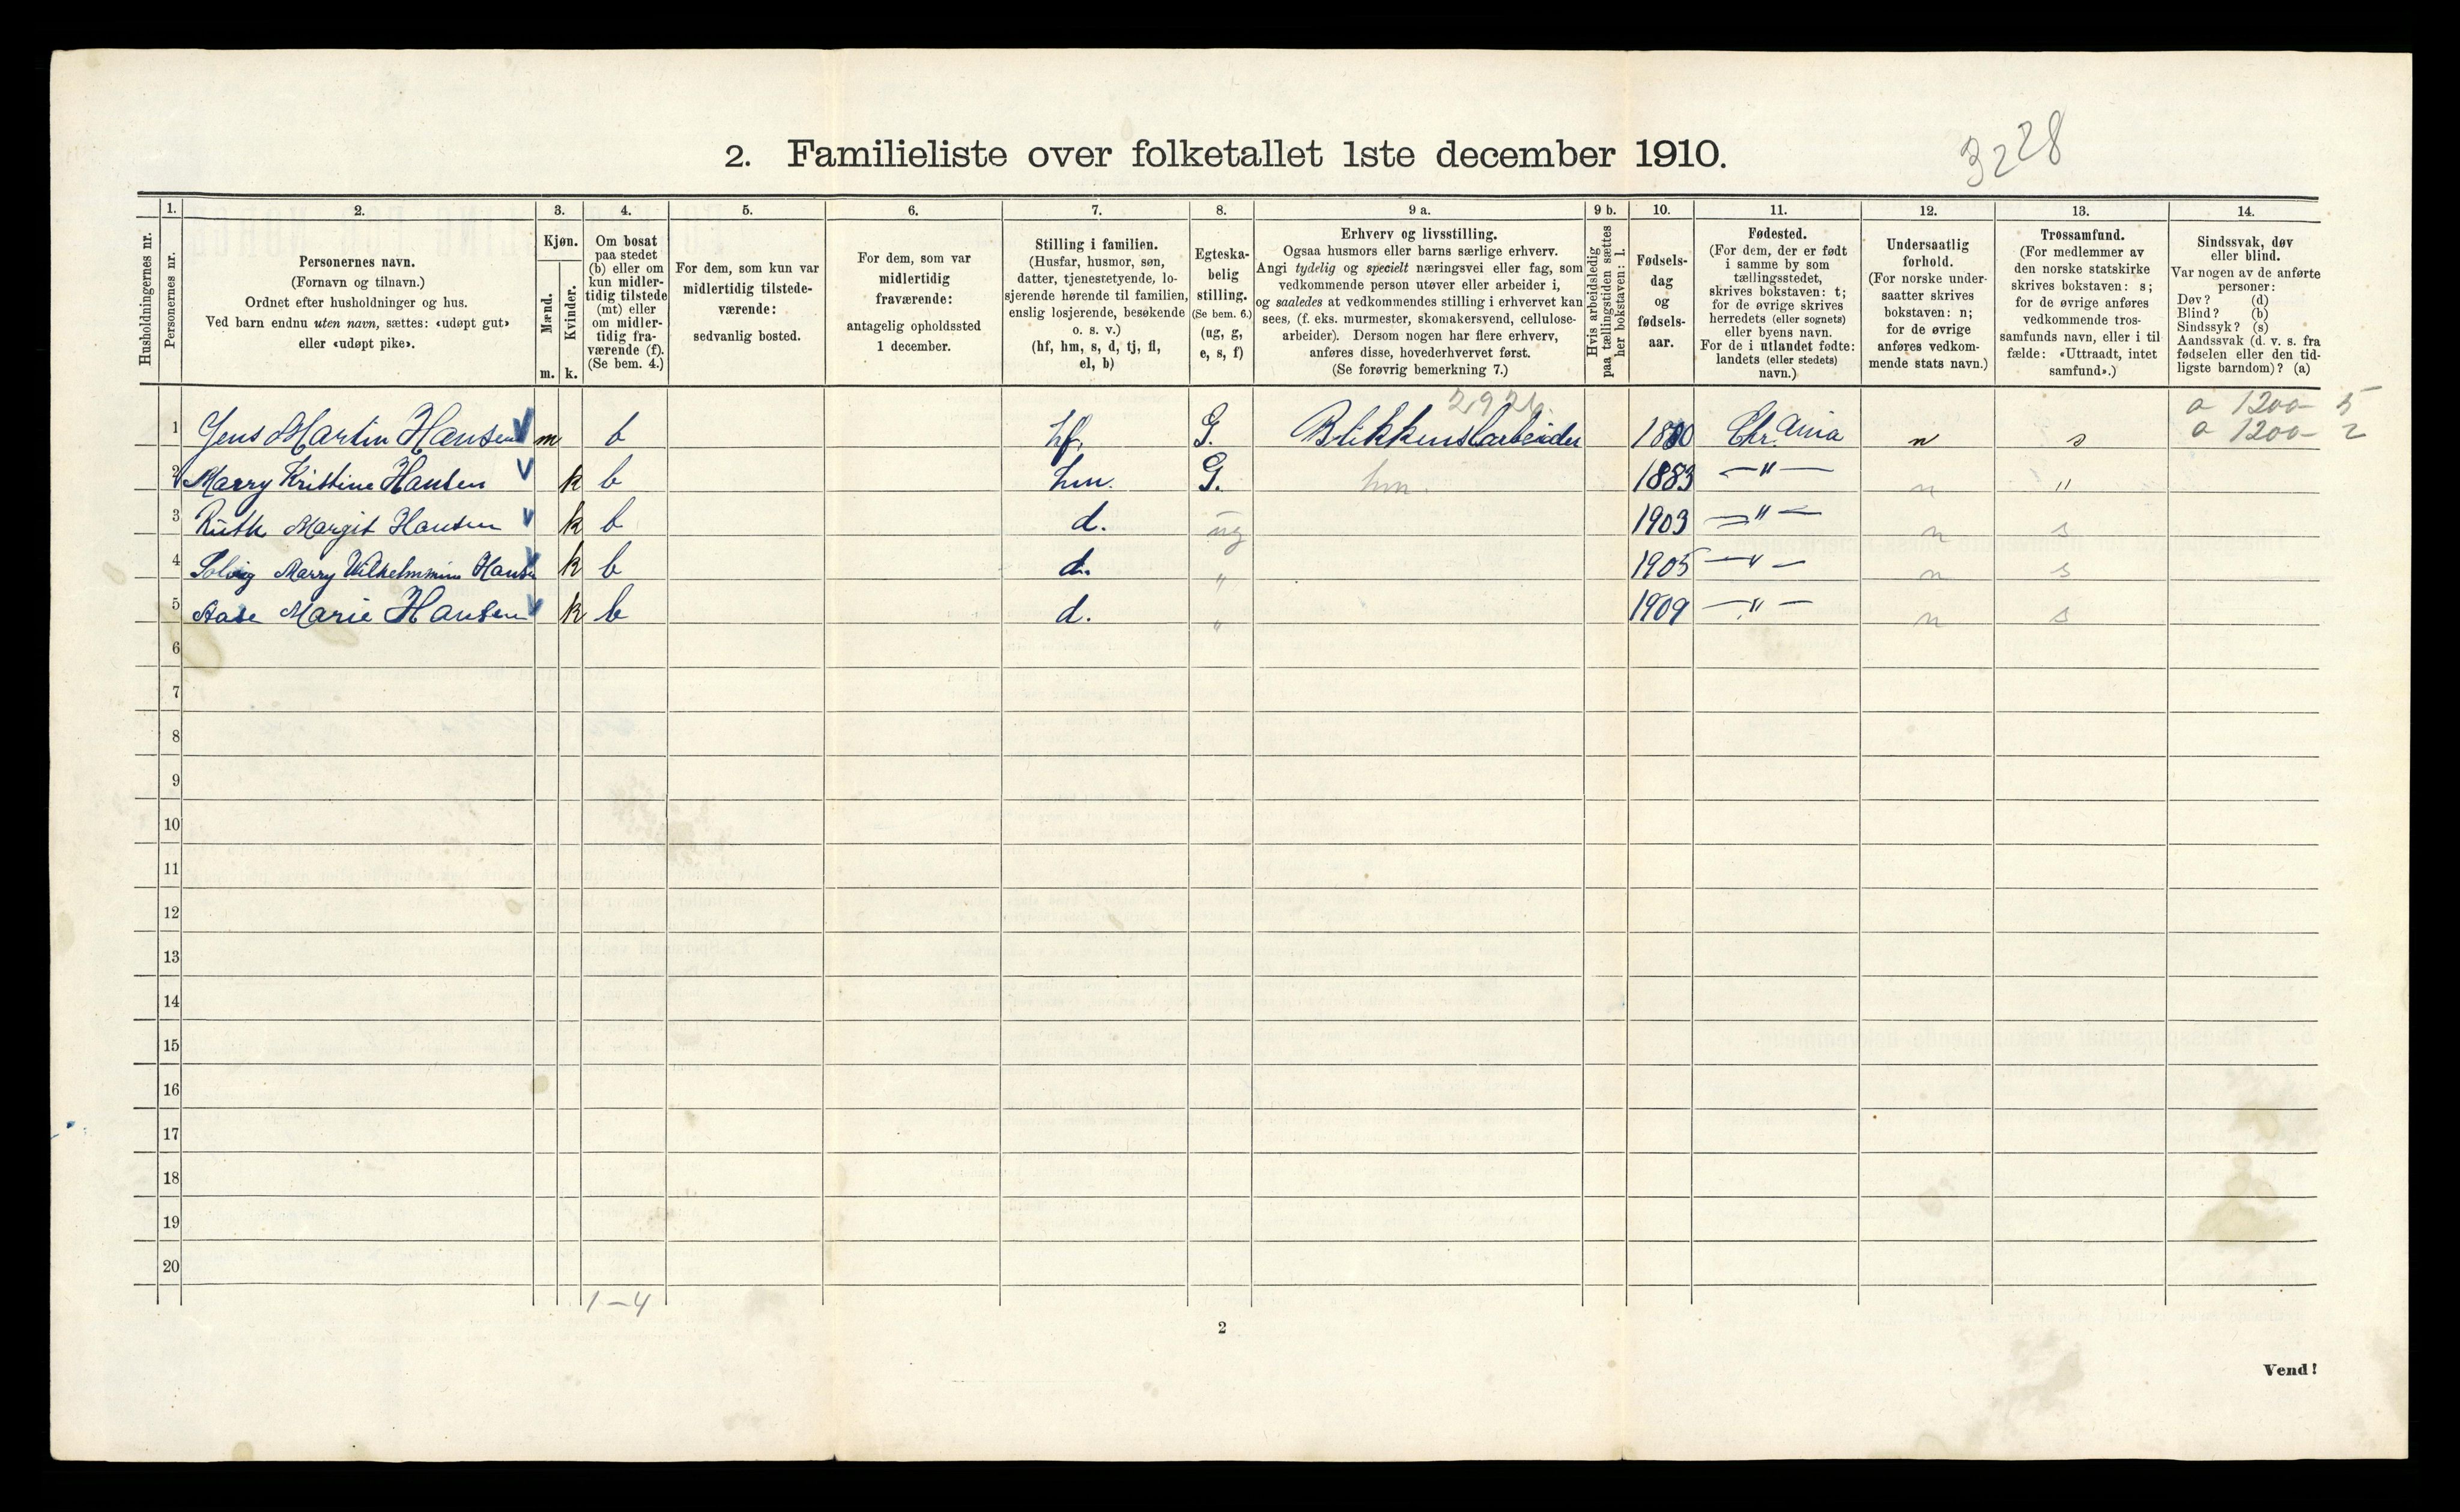 3228
2. Familieliste over folketallet 1ste december 1910.
Husholdningernes nr.
1.
Personernes nr.
2.
Personernes navn.
(Fornavn og tilnavn.)
Ordnet efter husholdninger og hus.
Ved barn endnu uten navn, sættes: «udøpt gut»
eller «udøpt pike».
3.
Kjøn.
Mænd.
Kvinder.
m.
k.
4.
Om bosat
paa stedet
(b) eller om
kun midler-
tidig tilstede
(mt) eller
om midler-
tidig fra-
værende (f).
(Se bem. 4.)
5.
For dem, som kun var
midlertidig tilstede-
værende:
sedvanlig bosted.
6.
For dem, som var
midlertidig
fraværende:
antagelig opholdssted
1 december.
7.
Stilling i familien.
(Husfar, husmor, søn,
datter, tjenestetyende, lo-
sjerende hørende til familien,
enslig losjerende, besøkende
o. s. v.)
(hf, hm, s, d, tj, fl,
el, b)
8.
Egteska-
belig
stilling.
(Se bem. 6.)
(ug, g,
e, s, f)
9 a.
Erhverv og livsstilling.
Ogsaa husmors eller barns særlige erhverv.
Angi tydelig og specielt næringsvei eller fag, som
vedkommende person utøver eller arbeider i,
og saaledes at vedkommendes stilling i erhvervet kan
sees, (f. eks. murmester, skomakersvend, cellulose-
arbeider). Dersom nogen har flere erhverv,
anføres disse, hovederhvervet først.
(Se forøvrig bemerkning 7.)
9 b.
Hvis arbeidsledig
paa tællingstiden sættes
her bokstaven: l.
10.
Fødsels-
dag
og
fødsels-
aar.
11.
Fødested.
(For dem, der er født
i samme by som
tællingsstedet,
skrives bokstaven: t;
for de øvrige skrives
herredets (eller sognets)
eller byens navn.
For de i utlandet fødte:
landets (eller stedets)
navn.)
12.
Undersaatlig
forhold.
(For norske under-
saatter skrives
bokstaven: n;
for de øvrige
anføres vedkom-
mende stats navn.)
13.
Trossamfund.
(For medlemmer av
den norske statskirke
skrives bokstaven: s;
for de øvrige anføres
vedkommende tros-
samfunds navn, eller i til
fælde: «Uttraadt, intet
samfund».)
14.
Sindssvak, døv
eller blind.
Var nogen av de anførte
personer:
Døv? (d)
Blind? (b)
Sindssyk? (s)
Aandssvak (d. v. s. fra
fødselen eller den tid-
ligste barndom)? (a)
a 1200- 5
a 1200- 2
1 Jens Martin Hansen m b hf. G. Blikkenslarbeider 1880 Chr.ania n s
2 Marry Kristine Hansen k b hm. G. hm. 1883 —"— n "
3 Ruth Margit Hansen k b d. ug 1903 —"— n s
4 Solvig Marry Wilhelmmine Hansen k b d. " 1905 —"— n s
5 Aase Marie Hansen k b d. " 1909 —"— n s
6
7
8
9
10
11
12
13
14
15
16
17
18
19
20
1-4
2
Vend!